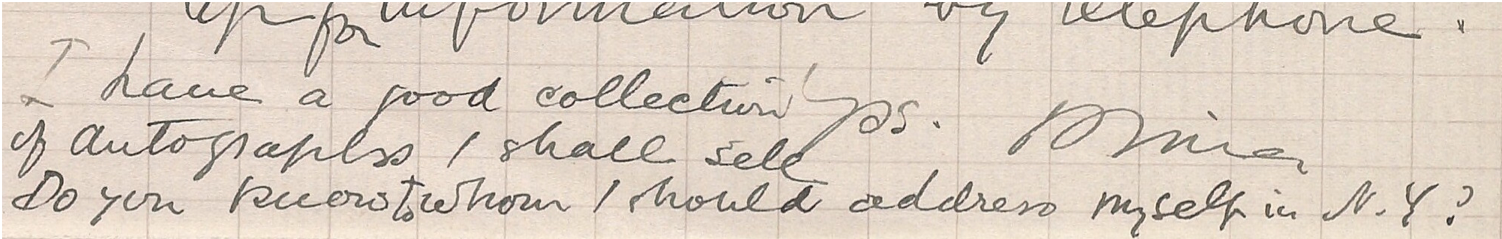 up for information by telephone.
I have a good collection PS.
of autographs I shall sell
Do you know to whom I should address myself in N.Y?